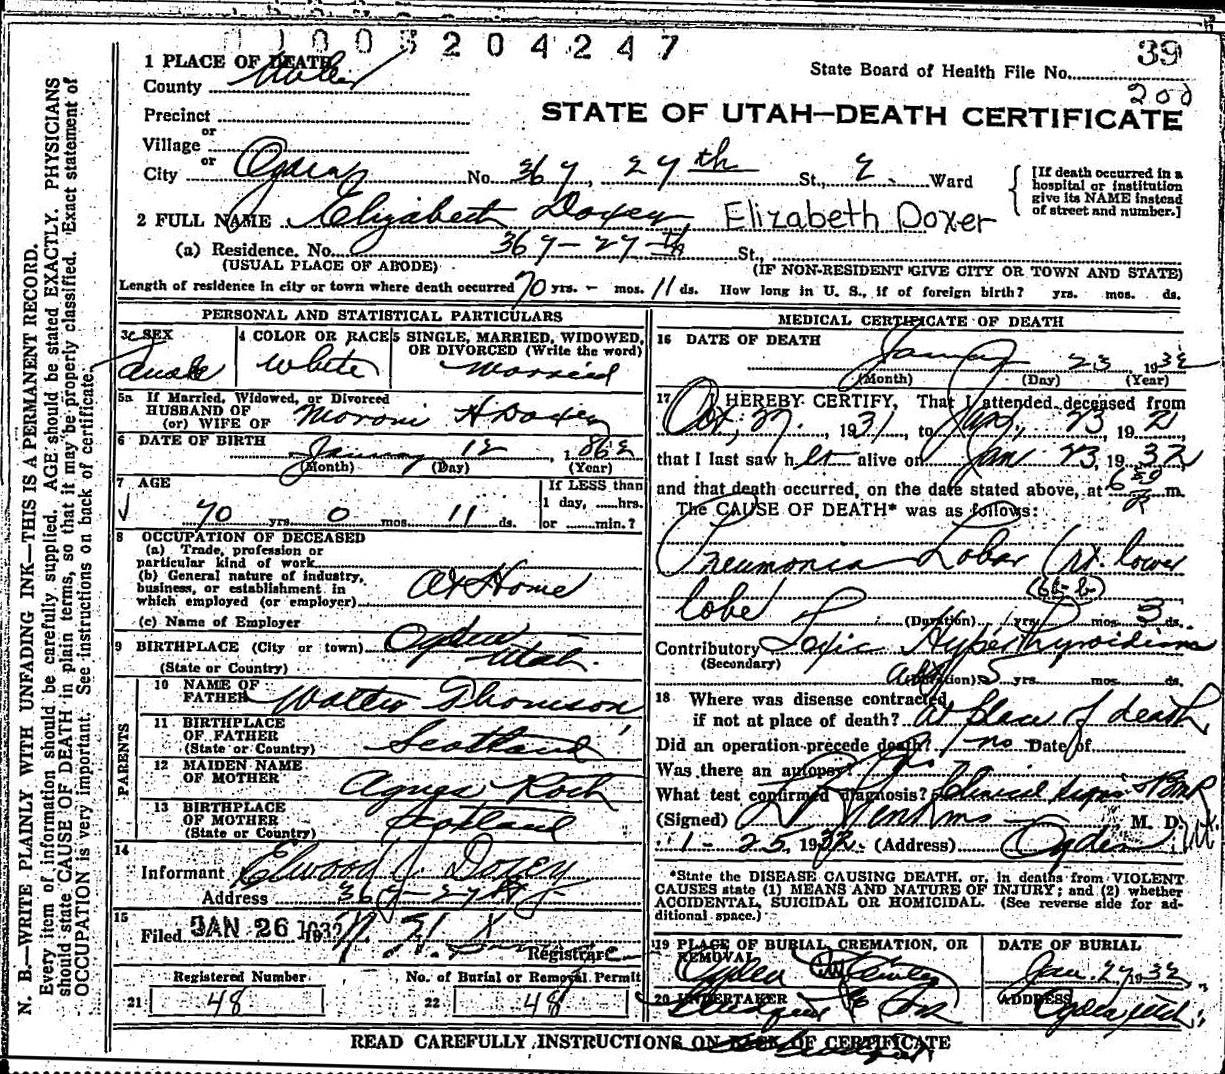 11005204247
39
State Board of Health File No.
200
1 PLACE OF DEATH
County Weber
STATE OF UTAH—DEATH CERTIFICATE
Precinct
or
Village
or
City Ogden No. 369, 27th St., 2 Ward
[If death occurred in a hospital or institution give its NAME instead of street and number.]
2 FULL NAME Elizabeth Doxey Elizabeth Doxer
(a) Residence. No. 369-27th St.,
(USUAL PLACE OF ABODE) (IF NON-RESIDENT GIVE CITY OR TOWN AND STATE)
Length of residence in city or town where death occurred 70 yrs. - mos. 11 ds. How long in U. S., if of foreign birth? yrs. mos. ds.
PERSONAL AND STATISTICAL PARTICULARS
3 SEX
4 COLOR OR RACE White
5 SINGLE, MARRIED, WIDOWED, OR DIVORCED (Write the word)
Married
5a If Married, Widowed, or Divorced
HUSBAND OF
(or) WIFE OF Moroni H Doxey
6 DATE OF BIRTH
January 12, 1862
(Month) (Day) (Year)
7 AGE
70 yrs. 0 mos. 11 ds.
If LESS than
1 day, hrs.
or min.?
8 OCCUPATION OF DECEASED
(a) Trade, profession or
particular kind of work
(b) General nature of industry,
business, or establishment in
which employed (or employer) At Home
(c) Name of Employer
9 BIRTHPLACE (City or town) Ogden
(State or Country) Utah
PARENTS
10 NAME OF
FATHER Walter Thomson
11 BIRTHPLACE
OF FATHER
(State or Country) Scotland
12 MAIDEN NAME
OF MOTHER Agnes Roch
13 BIRTHPLACE
OF MOTHER
(State or Country) Scotland
14
Informant Elwood J. Doxey
Address 369-27 St
15
Filed JAN 26 1932
Registrar
Registered Number
21 48
No. of Burial or Removal Permit
22 48
MEDICAL CERTIFICATE OF DEATH
16 DATE OF DEATH
January 23 1932
(Month) (Day) (Year)
17 I HEREBY CERTIFY, That I attended deceased from
Oct, 27, 1931, to Jan, 23, 192
that I last saw h alive on Jan 23, 1932
and that death occurred, on the date stated above, at m.
The CAUSE OF DEATH* was as follows:
Pneumonia Lobar (rt. lower
lobe (Duration) yrs. mos. 3 ds.
Contributory Toxic Hyperthyroidism
(Secondary)
(Duration) 5 yrs. mos. ds.
18 Where was disease contracted
if not at place of death? At place of death
Did an operation precede death? no Date of
Was there an autopsy? No.
What test confirmed diagnosis? Clinical signs
(Signed) Jenkins M. D.
1-25, 1932 (Address) Ogden, Ut.
*State the DISEASE CAUSING DEATH, or, in deaths from VIOLENT
CAUSES state (1) MEANS AND NATURE OF INJURY; and (2) whether
ACCIDENTAL, SUICIDAL OR HOMICIDAL. (See reverse side for ad-
ditional space.)
19 PLACE OF BURIAL, CREMATION, OR
REMOVAL
Ogden
DATE OF BURIAL
Jan. 27 1932
20 UNDERTAKER
ADDRESS
Ogden Utah
READ CAREFULLY INSTRUCTIONS ON BACK OF CERTIFICATE
N. B.—WRITE PLAINLY WITH UNFADING INK—THIS IS A PERMANENT RECORD.
Every item of information should be carefully supplied. AGE should be stated EXACTLY. PHYSICIANS
should state CAUSE OF DEATH in plain terms, so that it may be properly classified. Exact statement of
OCCUPATION is very important. See instructions on back of certificate.